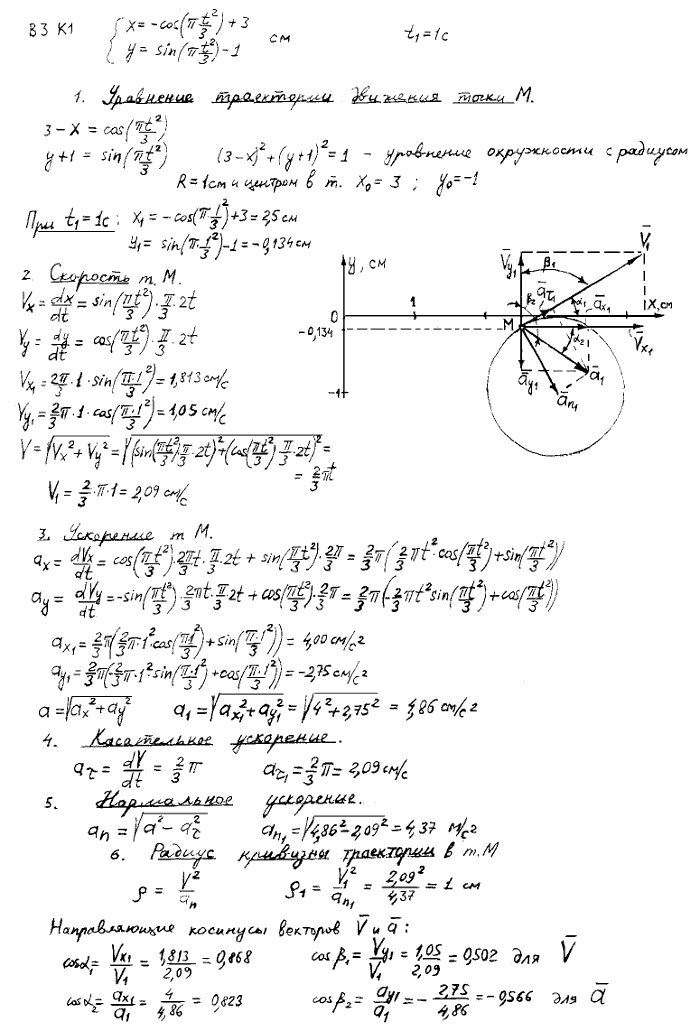 В3 К1 { x = -cos(π t²/3) + 3 см t₁ = 1 с
y = sin(π t²/3) - 1
1. Уравнение траектории движения точки М.
3 - x = cos(πt²/3)
y + 1 = sin(πt²/3) (3-x)² + (y+1)² = 1 - уравнение окружности с радиусом
R = 1 см и центром в т. x₀ = 3 ; y₀ = -1
При t₁ = 1 с: x₁ = -cos(π·1²/3) + 3 = 2,5 см
y₁ = sin(π·1²/3) - 1 = -0,134 см
2. Скорость т. М.
Vx = dx/dt = sin(πt²/3)·π/3·2t
Vy = dy/dt = cos(πt²/3)·π/3·2t
Vx₁ = 2π/3·1·sin(π·1²/3) = 1,813 см/с
Vy₁ = 2/3π·1·cos(π·1²/3) = 1,05 см/с
V = √(Vx² + Vy²) = √((sin(πt²/3)π/3·2t)² + (cos(πt²/3)·π/3·2t)²) =
= 2/3πt
V₁ = 2/3·π·1 = 2,09 см/с
y, см
V̄y₁
β₁
V̄₁
β₂
āτ₁
α₁
āx₁
x, см
0
1
2
М
-0,134
α₂
V̄x₁
āy₁
ā₁
ān₁
-1
3. Ускорение т М.
ax = dVx/dt = cos(πt²/3)·2πt/3·π/3·2t + sin(πt²/3)·2π/3 = 2/3π(2/3πt²·cos(πt²/3) + sin(πt²/3))
ay = dVy/dt = -sin(πt²/3)·2πt/3·π/3·2t + cos(πt²/3)·2π/3 = 2/3π(-2/3πt²sin(πt²/3) + cos(πt²/3))
ax₁ = 2/3π(2/3π·1²·cos(π·1²/3) + sin(π·1²/3)) = 4,00 см/с²
ay₁ = 2/3π(-2/3π·1²·sin(π·1²/3) + cos(π·1²/3)) = -2,75 см/с²
a = √(ax² + ay²) a₁ = √(ax₁² + ay₁²) = √(4² + 2,75²) = 4,86 см/с²
4. Касательное ускорение.
aτ = dV/dt = 2/3 π aτ₁ = 2/3 π = 2,09 см/с
5. Нормальное ускорение.
an = √(a² - aτ²) an₁ = √(4,86² - 2,09²) = 4,37 м/с²
6. Радиус кривизны траектории в т. М
ρ = V²/an ρ₁ = V₁²/an₁ = 2,09²/4,37 = 1 см
Направляющие косинусы векторов V̄ и ā:
cosα₁ = Vx₁/V₁ = 1,813/2,09 = 0,868 cosβ₁ = Vy₁/V₁ = 1,05/2,09 = 0,502 для V̄
cosα₂ = ax₁/a₁ = 4/4,86 = 0,823 cosβ₂ = ay₁/a₁ = -2,75/4,86 = -0,566 для ā